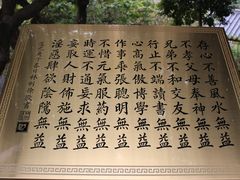 存心不善風水無益
不孝父母奉神無益
兄弟不和交友無益
行止不端讀書無益
心高氣傲博學無益
作事乖張聰明無益
不惜元氣服藥無益
時運不通妄求無益
妄取人財佈施無益
淫惡肆欲陰騭無益
林則徐